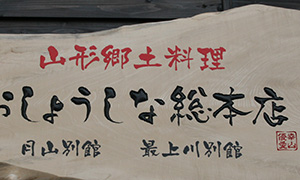 山形郷土料理
おしょうしな総本店
月山別館 最上川別館